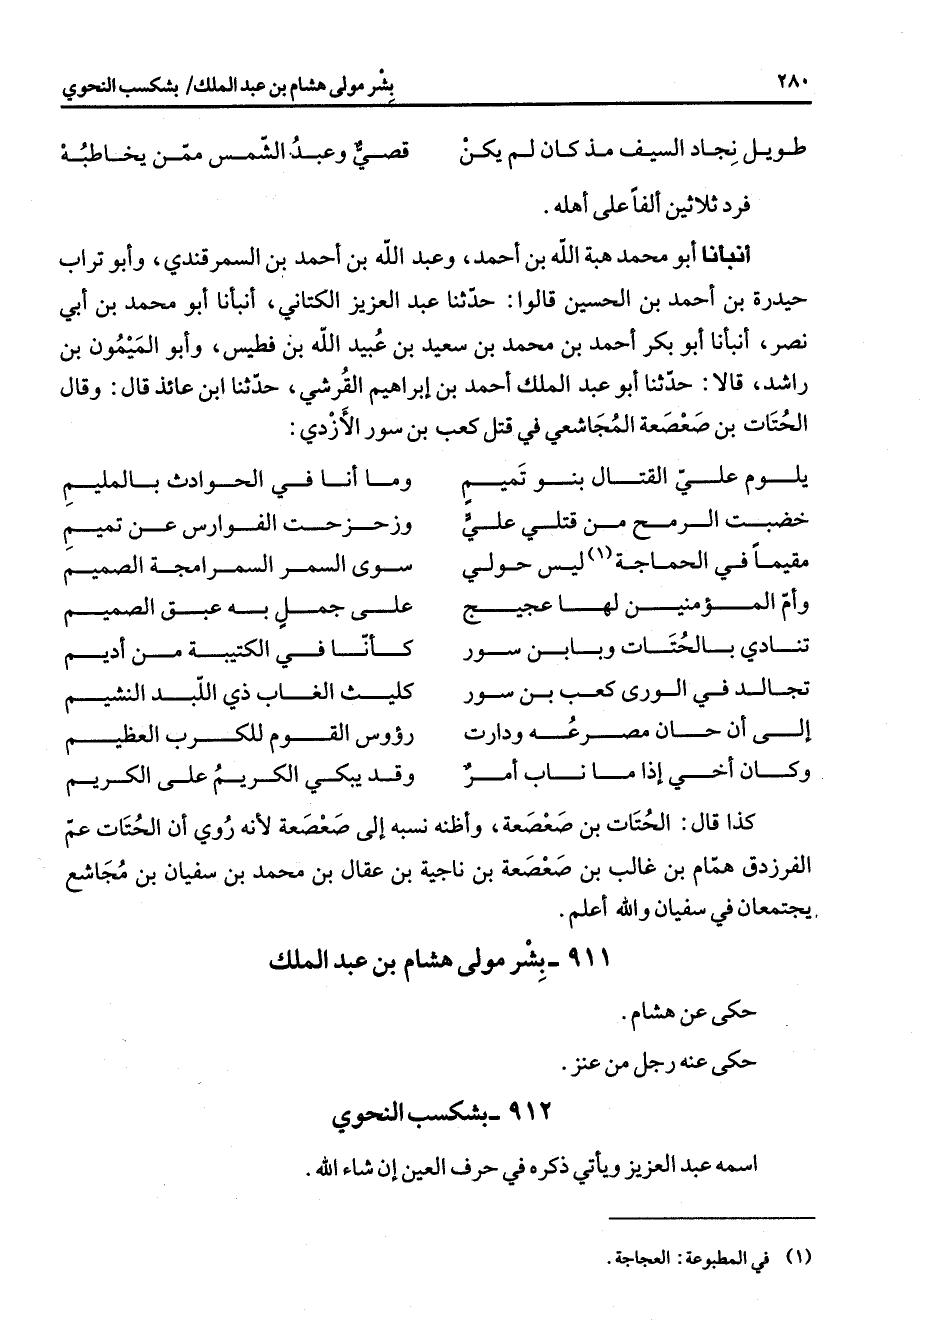 ٢٨٠ بِشْر مولى هشام بن عبد الملك/ بشكسب النحوي
طويل نِجاد السيف مذ كان لم يكنْ قصيٌّ وعبدُ الشّمس ممّن يخاطبُهْ
فرد ثلاثين ألفاً على أهله.
انبانا أبو محمد هبة اللّه بن أحمد، وعبد اللّه بن أحمد بن السمرقندي، وأبو تراب
حيدرة بن أحمد بن الحسين قالوا: حدّثنا عبد العزيز الكتاني، أنبأنا أبو محمد بن أبي
نصر، أنبأنا أبو بكر أحمد بن محمد بن سعيد بن عُبيد اللّه بن فطيس، وأبو المَيْمُون بن
راشد، قالا: حدّثنا أبو عبد الملك أحمد بن إبراهيم القُرشي، حدّثنا ابن عائذ قال: وقال
الحُتَات بن صَعْصَعة المُجَاشعي في قتل كعب بن سور الأَزْدي:
يلوم عليّ القتال بنو تَميمٍ وما أنا في الحوادث بالمليمِ
خضبت الرمح من قتلي عليٍّ وزحزحت الفوارس عن تميمِ
مقيماً في الحماجة(١) ليس حولي سوى السمر السمرامجة الصميم
وأمّ المؤمنين لها عجيج على جملٍ به عبق الصميم
تنادي بالحُتَات وبابن سور كأنّا في الكتيبة من أديم
تجالد في الورى كعب بن سور كليث الغاب ذي اللّبد النشيم
إلى أن حان مصرعُه ودارت رؤوس القوم للكرب العظيم
وكان أخي إذا ما ناب أمرٌ وقد يبكي الكريمُ على الكريم
كذا قال: الحُتَات بن صَعْصَعة، وأظنه نسبه إلى صَعْصَعة لأنه رُوي أن الحُتَات عمّ
الفرزدق همّام بن غالب بن صَعْصَعة بن ناجية بن عقال بن محمد بن سفيان بن مُجَاشع
يجتمعان في سفيان والله أعلم.
٩١١ ـ بِشْر مولى هشام بن عبد الملك
حكى عن هشام.
حكى عنه رجل من عنز.
٩١٢ ـ بشكسب النحوي
اسمه عبد العزيز ويأتي ذكره في حرف العين إن شاء الله.
(١) في المطبوعة: العجاجة.